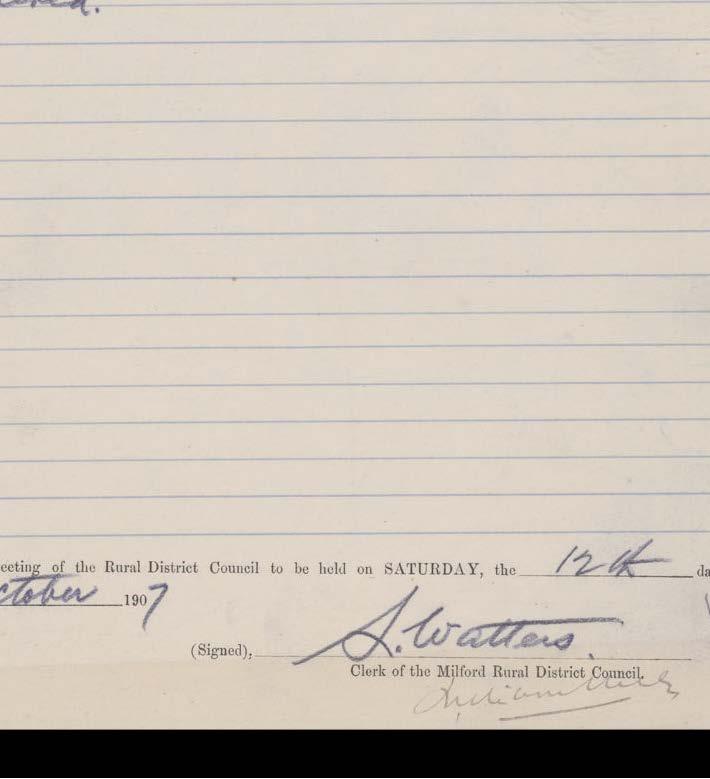 eeting of the Rural District Council to be held on SATURDAY, the 12th da
ctober 1907
(Signed), S. Watters.
Clerk of the Milford Rural District Council.